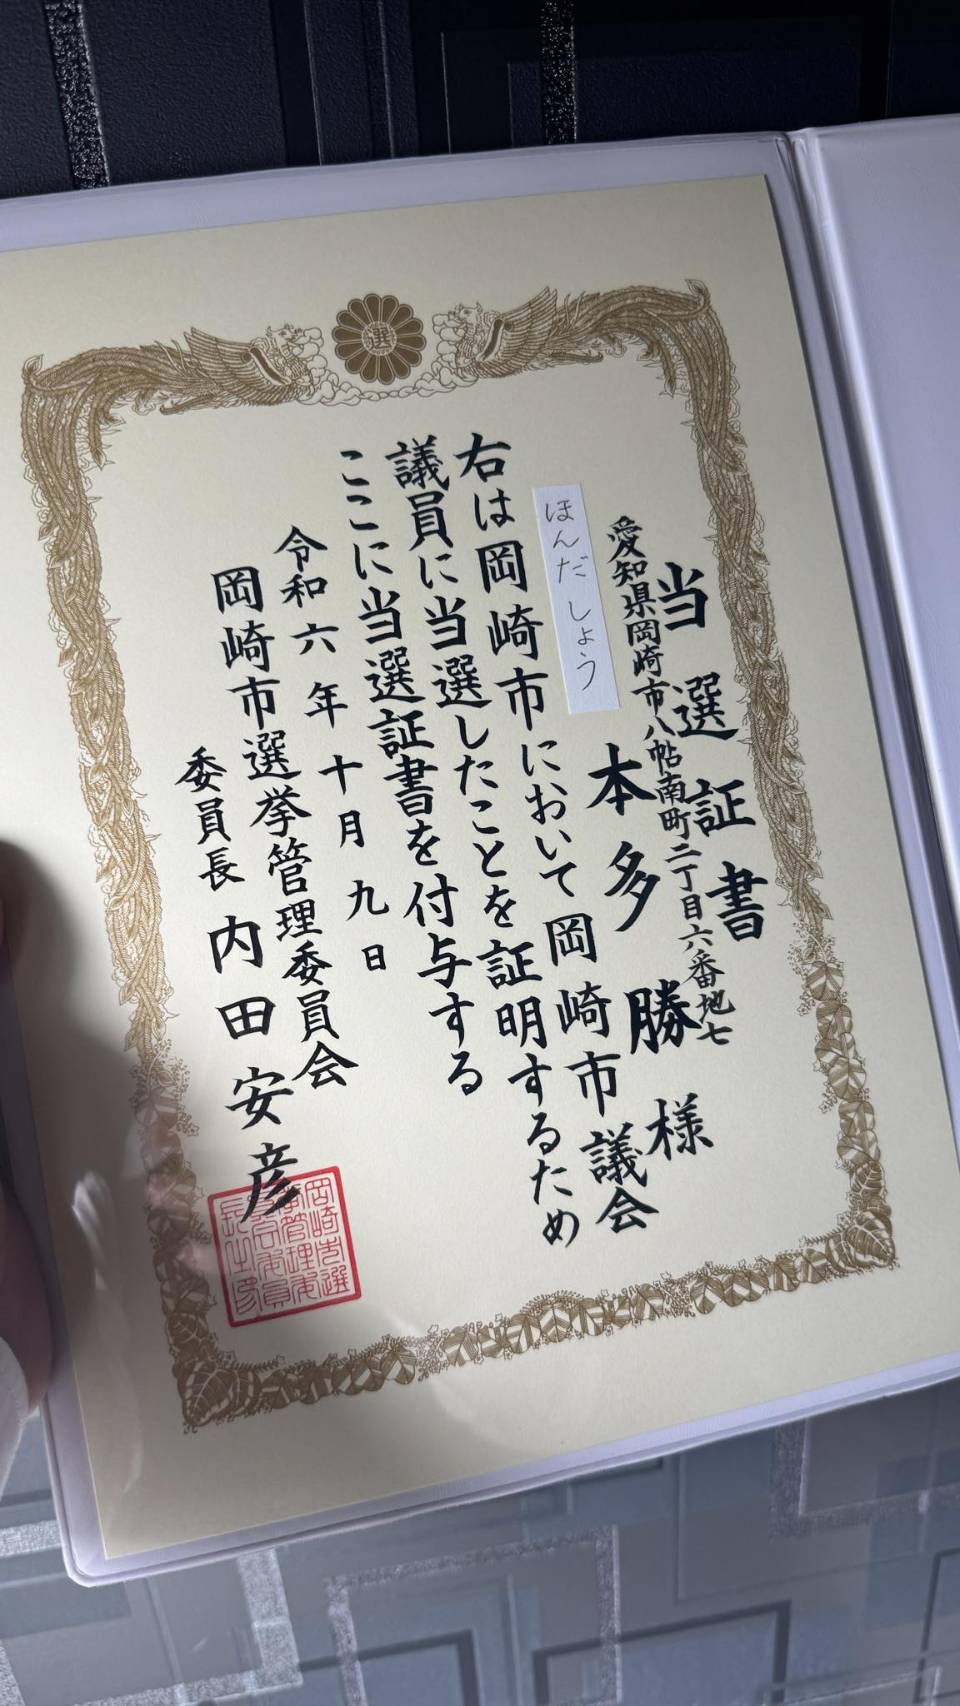 選
当選証書
愛知県岡崎市八帖南町二丁目六番地七
ほんだ しょう
本多勝様
右は岡崎市において岡崎市議会
議員に当選したことを証明するため
ここに当選証書を付与する
令和六年十月九日
岡崎市選挙管理委員会
委員長 内田安彦